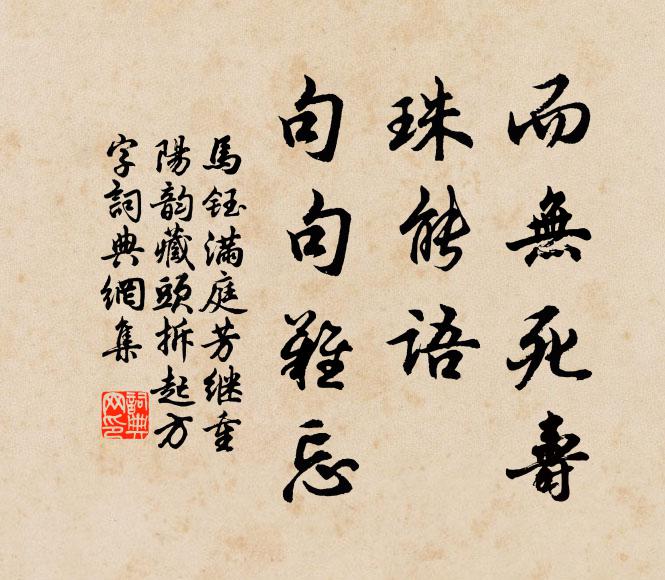 而無死壽
珠能語
句句難忘
馬鈺滿庭芳继重
陽韵藏頭拆起方
字詞典網集
詞典网印